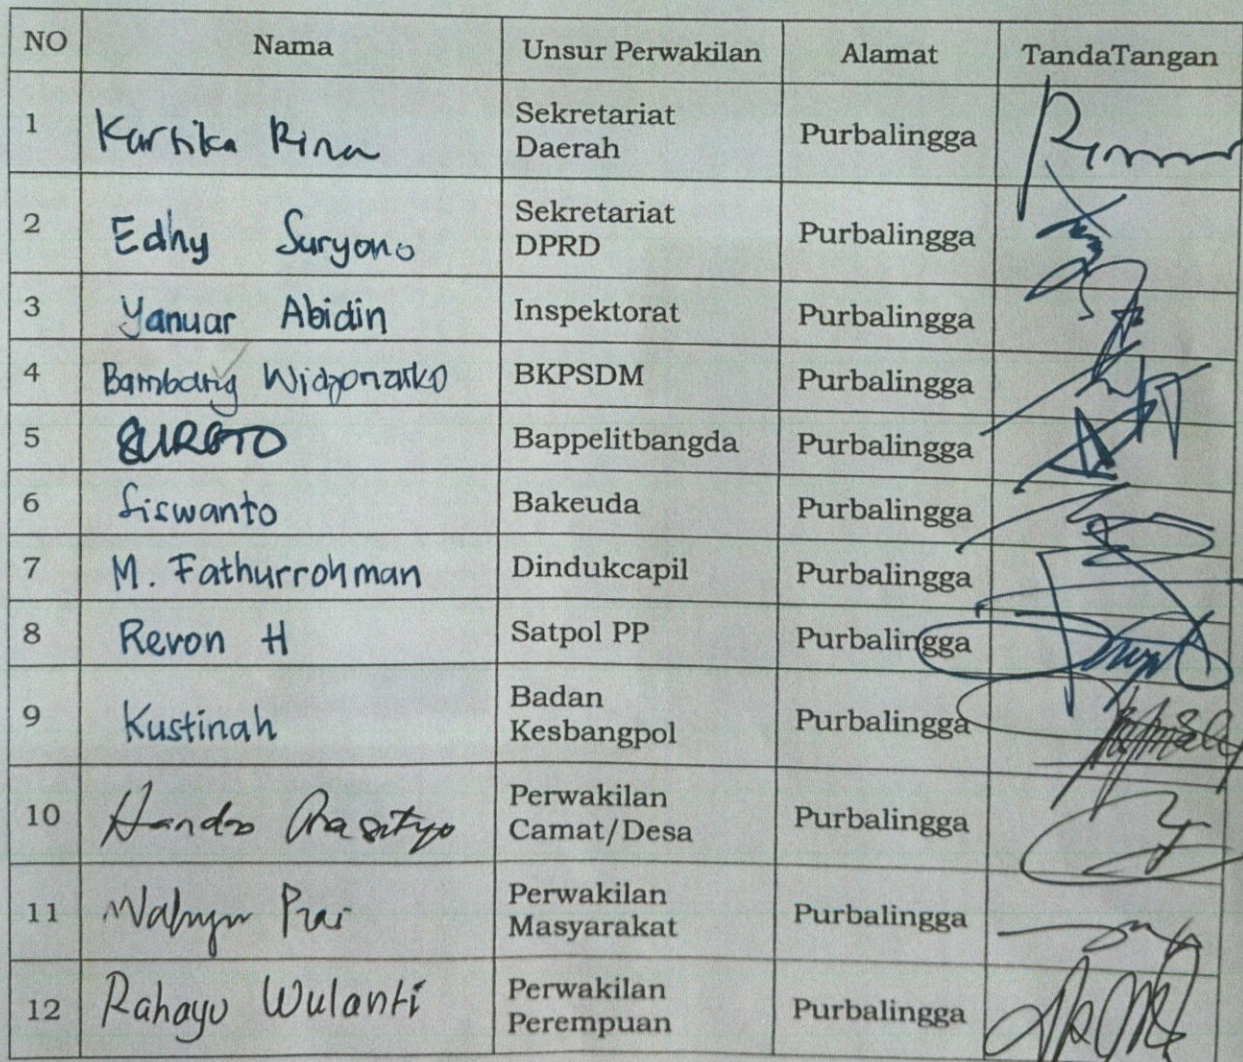 NO Nama Unsur Perwakilan Alamat TandaTangan
1 Kartika Rina Sekretariat Daerah Purbalingga
2 Edhy Suryono Sekretariat DPRD Purbalingga
3 Yanuar Abidin Inspektorat Purbalingga
4 Bambang Widjonarko BKPSDM Purbalingga
5 SUROTO Bappelitbangda Purbalingga
6 Siswanto Bakeuda Purbalingga
7 M. Fathurrohman Dindukcapil Purbalingga
8 Revon H Satpol PP Purbalingga
9 Kustinah Badan Kesbangpol Purbalingga
10 Perwakilan Camat/Desa Purbalingga
11 Perwakilan Masyarakat Purbalingga
12 Rahayu Wulanti Perwakilan Perempuan Purbalingga